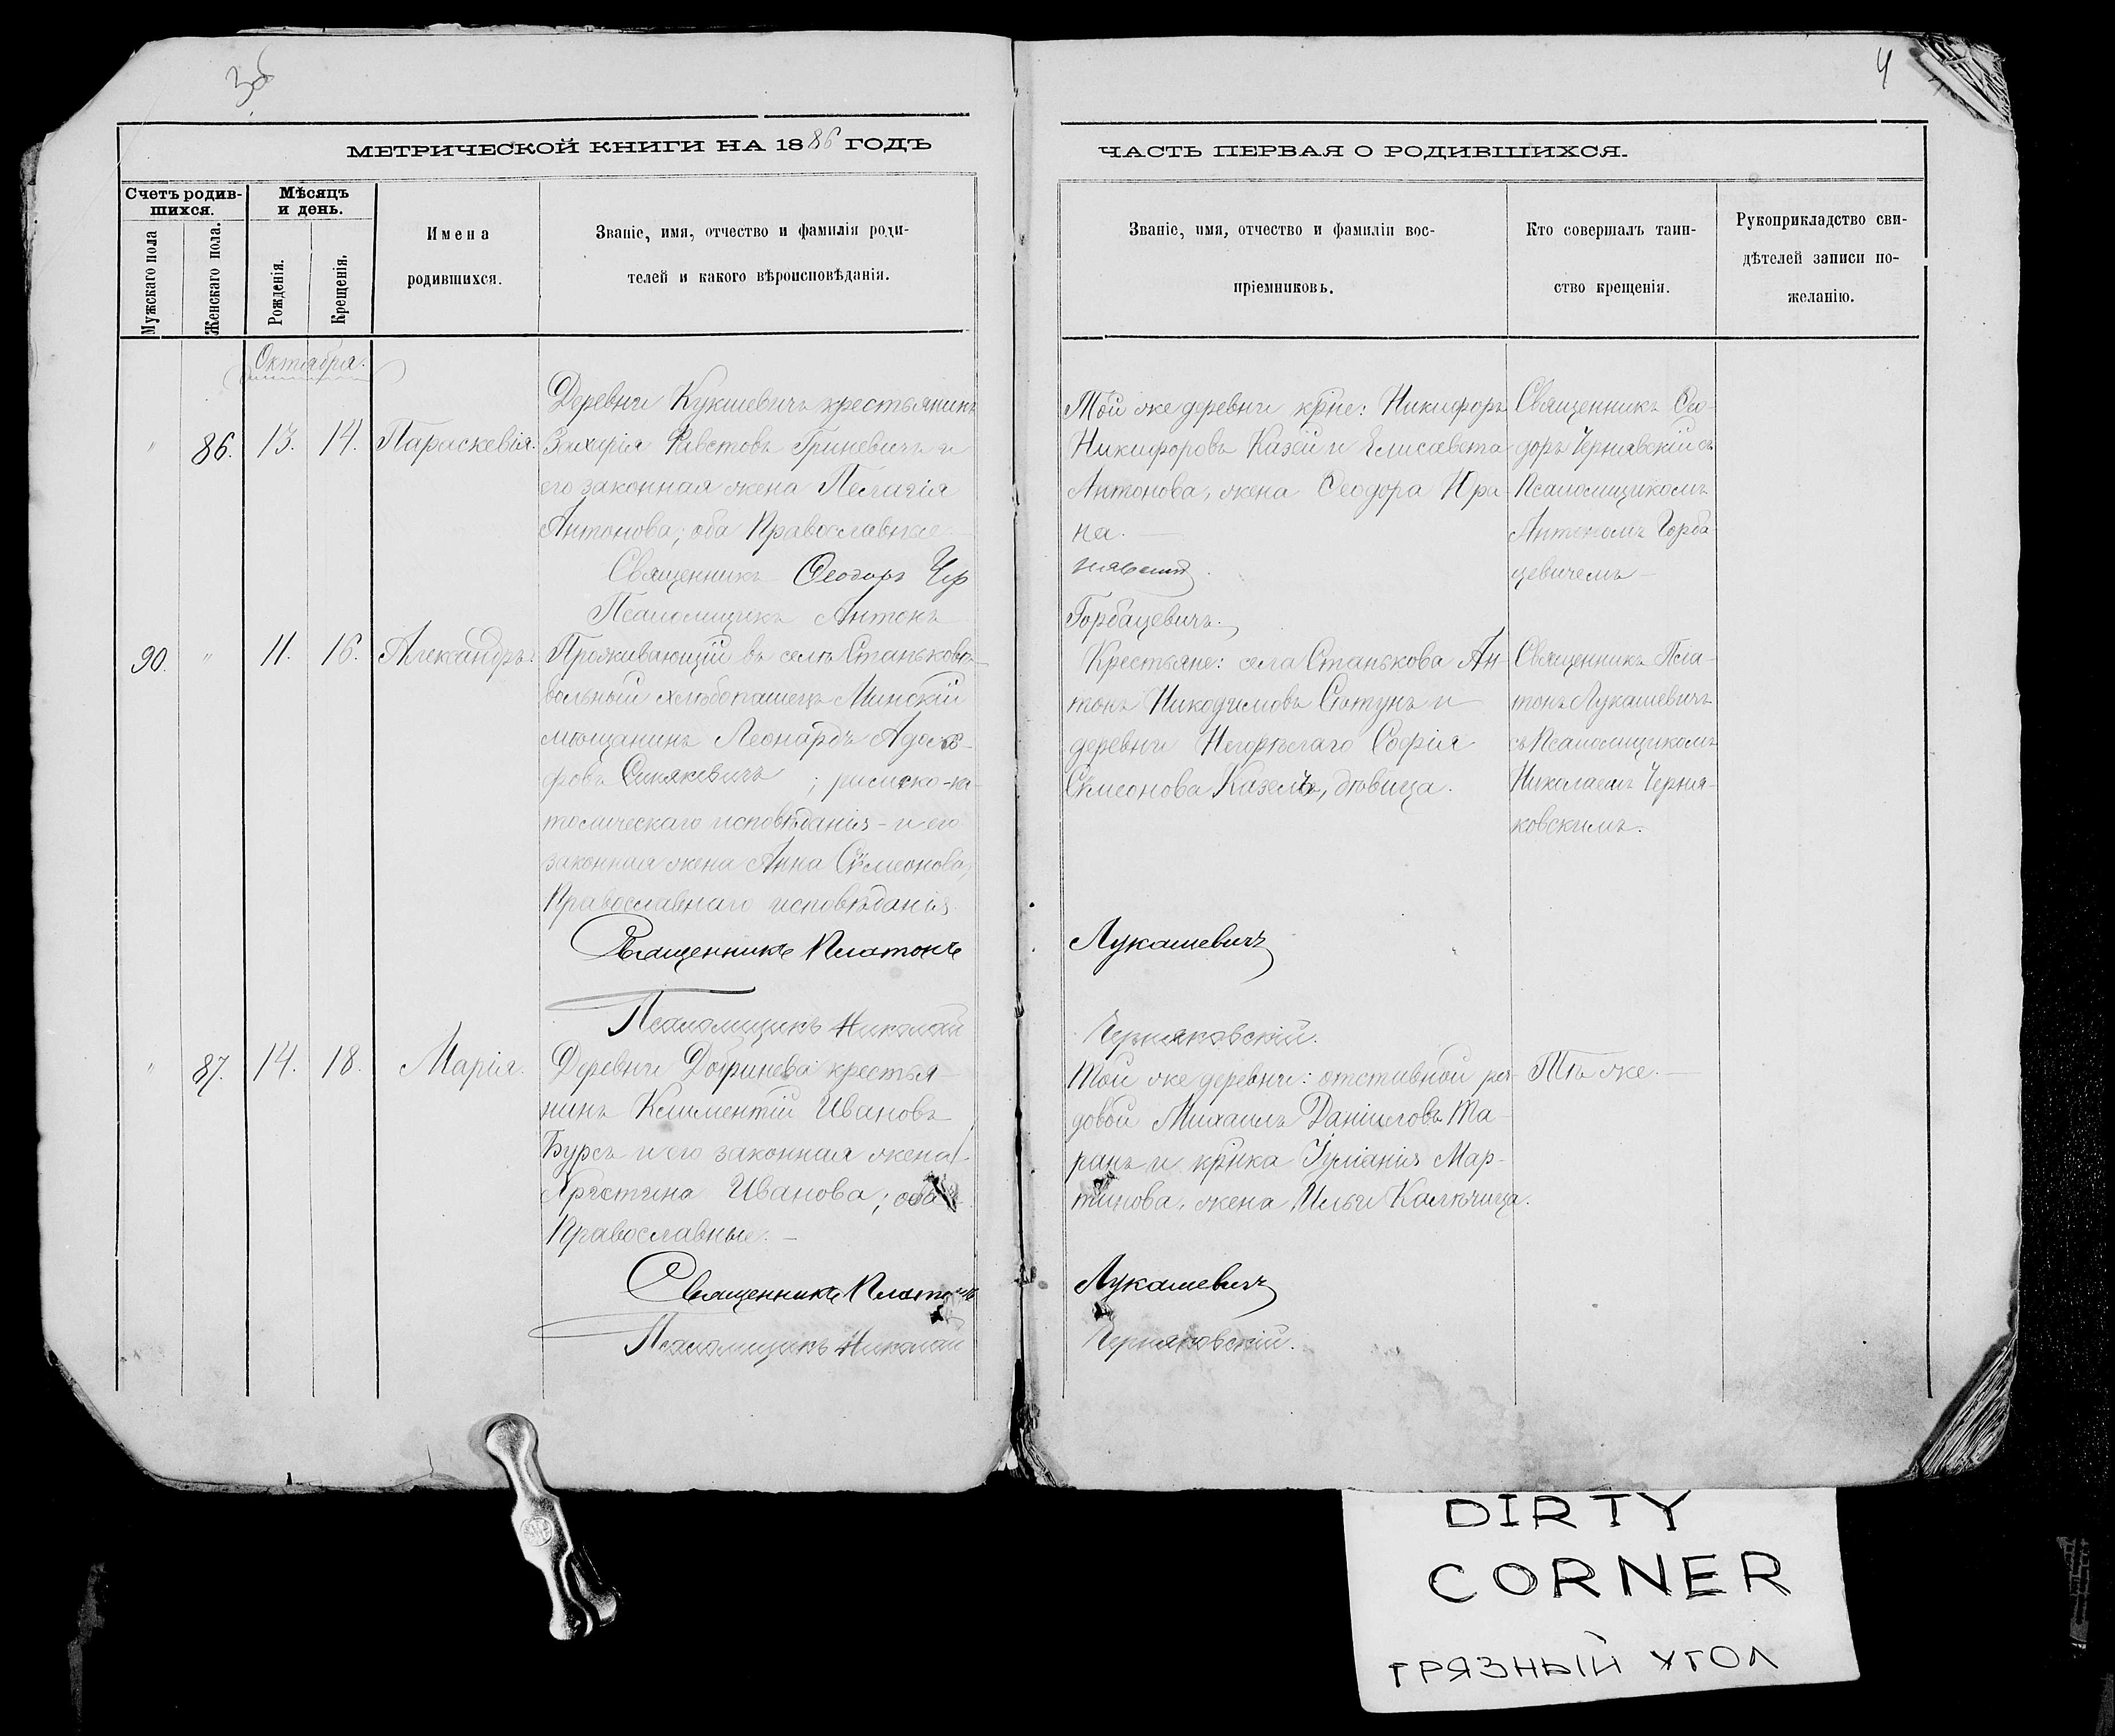 3об
4
МЕТРИЧЕСКОЙ КНИГИ НА 1886 ГОДЪ
ЧАСТЬ ПЕРВАЯ О РОДИВШИХСЯ.
Счетъ родив-
шихся.
Мужскаго пола
Женскаго пола.
Мѣсяцъ
и день.
Рожденія.
Крещенія.
Имена
родившихся.
Званіе, имя, отчество и фамилія роди-
телей и какого вѣроисповѣданія.
Званіе, имя, отчество и фамиліи вос-
пріемниковъ.
Кто совершалъ таин-
ство крещенія.
Рукоприкладство сви-
дѣтелей записи по-
желанію.
Октября.
" 86. 13. 14. Параскевія.
Деревни Кукшевичъ крестьянинъ
Захарія Гриневичъ и
его законная жена Пелагія
Антонова; оба Православные
Священникъ Ѳеодоръ Чер
Псаломщикъ Антонъ
Той же деревни кр̃не: Никифоръ
Никифоровъ Казей и Елисавета
Антонова, жена Ѳеодора Юра-
на.
нявскій
Горбацевичъ.
Священникъ Ѳео-
доръ Чернявскій съ
Псаломщикомъ
Антономъ Горба-
цевичемъ
90. " 11. 16. Александръ.
Проживающій въ селѣ Станьковѣ
вольный хлѣбопашецъ Минскій
мѣщанинъ Леонардъ Адоль-
фовъ Синякевичъ; римско-ка-
толическаго исповѣданія - и его
законная жена Анна Сѵмеонова,
Православнаго исповѣданія.
Священникъ Платонъ
Псаломщикъ Николай
Крестьяне: села Станькова Ан-
тонъ Никодимовъ и
деревни Негорѣлаго Софія
Сѵмеонова Казелъ, дѣвица.
Лукашевичъ
Черняковскій.
Священникъ Пла-
тонъ Лукашевичъ
съ Псаломщикомъ
Николаемъ Черня-
ковскимъ.
" 87. 14. 18. Марія.
Деревни Добринева крестья-
нинъ Климентій Ивановъ
Бурсъ и его законная жена
Христина Иванова; оба
Православные. -
Священникъ Платонъ
Псаломщикъ Николай
Той же деревни: отставной ря-
довой Михаилъ Даніиловъ Та-
ранъ и кр̃нка Іуліанія Мар-
тинова, жена Ильи Калючица.
Лукашевичъ
Черняковскій.
Тѣ же. -
DIRTY
CORNER
ГРЯЗНЫЙ УГОЛ